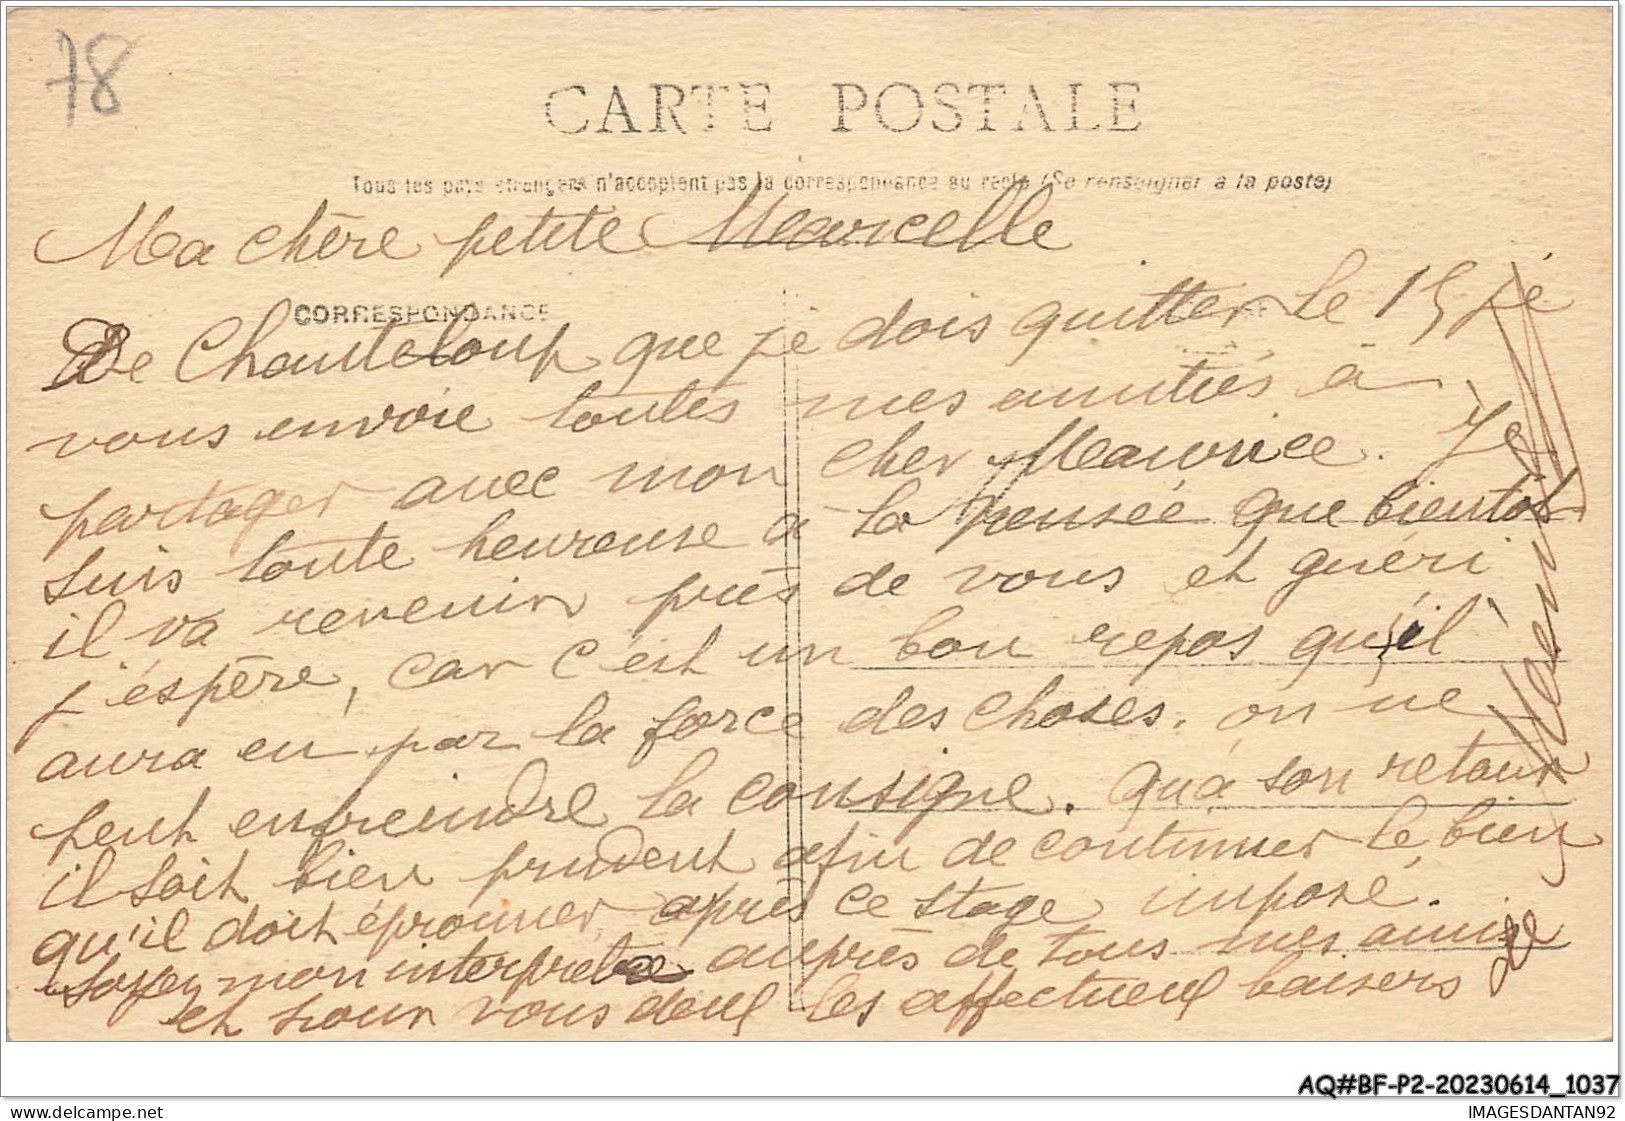 78
CARTE POSTALE
Tous les pays étrangers n'acceptent pas la correspondance au recto (Se renseigner à la poste)
Ma chère petite Marcelle
CORRESPONDANCE
De Chanteloup que je dois quitter le 15 je
vous envoie toutes mes amitiés à
partager avec mon cher Maurice. Je
suis toute heureuse à la pensée que bientôt
il va revenir près de vous et guéri
j'éspère, car c'est un bon repos qu'il
aura eu par la force des choses. on ne
peut enfreindre la consigne. Qu'à son retour
il soit bien prudent afin de continuer le bien
qu'il doit éprouver après ce stage imposé.
Soyez mon interprète auprès de tous mes amis
et pour vous deux les affectueux baisers de
AQ#BF-P2-20230614_1037
delcampe.net
IMAGESDANTAN92